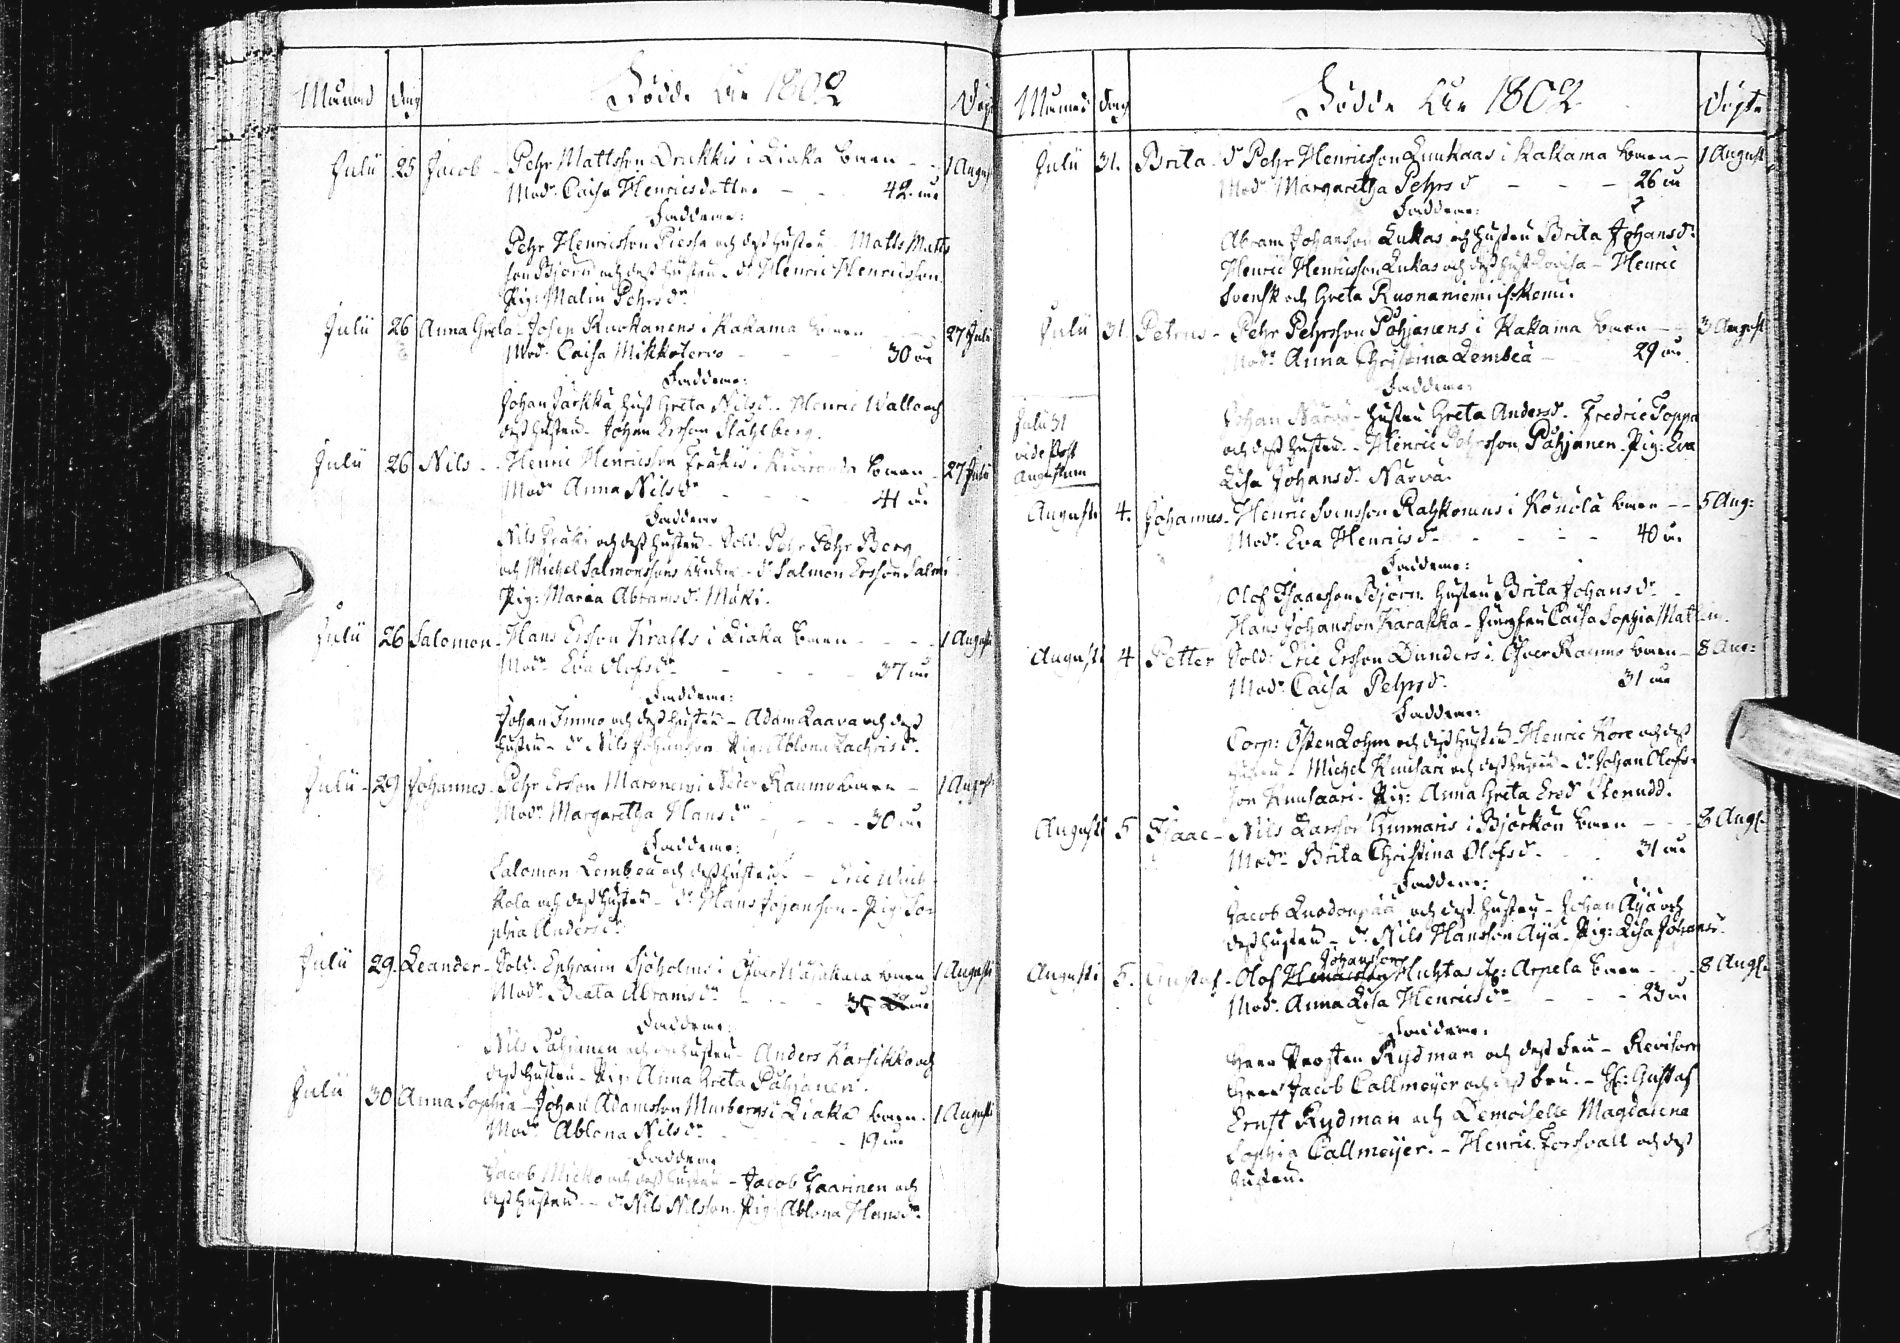 Månad dag Födde År 1802 Döpt
Julii 25 Jacob - Pehr Mattsson i Liakka barn - - 1 August
Modr Caisa Henricsdotter - - 42 år
Faddrar:
Pehr Henricsson och dess hustru Matts Matts
son Björn och dess hustru. Dr Henric Henricsson
Pig: Malin Pehrs dr
Julii 26 Anna Greta - Josep Ruokanens i Kakama barn 27 Julii
Modr Caisa Mikkotervo - - 30 år
Faddrar:
Johan Jarkkä hust Greta Nilsd. Henric Wallo och
dess hustru. Johan Ersson Ståhlberg.
Julii 26 Nils - Henric Henricsson barn 27 Julii
Modr Anna Nilsdr - - - 41 år
Faddrar
Nils och dess hustru. Sold. Pehr Pehr Berg
och Michel Salmonssons - dr Salmon Ersson Salmi
Pig: Marea Abramsd. Mäki.
Julii 26 Salomon - Hans Ersson Krafts i Liakka barn - - - 1 August
Modr Eva Olofsdr - - - 37 år
Faddrar:
Johan Simmo och dess hustru - Adam Laava och dess
hustru - dr Nils Johansson Pig: Ablona Zachrisdr.
Julii - 29 Johannes - Pehr Ersson i Neder Raumo barn - 1 August
Modr Margaretha Hansdr - - - 30 år
Faddrar:
Salomon Lembeä och dess hustru - Eric
kola och dess hustru - dr Hans Johansson - Pig: So-
phia Andersdr
Julii 29. Leander - Sold: Ephraim Sjöholms i Öfver Wojakkala barn 1 Augusti
Modr Beata Abramsdr - - - 35 år
Faddrar:
Nils Pahjanen och dess hustru - Anders Karsikko och
dess hustru - Pig: Anna Greta Pahjanen.
Julii 30 Anna Sophia - Johan Adamsson Murbergs i Liakka barn. 1 Augusti
Modr Ablona Nilsdr - - - 19 år
Faddrar
Jacob Micko och dess hustru - Jacob Laarinen och
dess hustru. - dr Nils Nilsson. Pig: Ablona Hansdr.
Månad dag Födde År 1802 Döpte
Julii 31. Brita - d Pehr Henricsson Luukaas i Kakama barn - 1 August
Modr Margaretha Pehrsd - - - 26 år
Faddrar:
Abram Johansson Lukas och hustru Brita Johansd.
Henric Henricsson Lukas och dess hust Lovisa - Henric
Svensk och Greta Ruonaniemi
Julii 31 Petrus - Pehr Pehrsson Pahjanens i Kakama barn - 3 August
Modr Anna Christina Lembeä - 29 år
Faddrar:
Johan Närvä hustru Greta Andersd. Fredric Poppa
och dess hustru - Henric Pehrsson Pahjanen. Pig: Eva
Lisa Johansd. Närvä.
Julii 31
vide post
Augustum
Augusti 4. Johannes - Henric Svensson Ratzkonens i Kouola barn - - 5 Aug:
Modr. Eva Henricsd - - - - 40 år
Faddrar:
Olof Isaacsson Björn. hustru Brita Johansdr -
Hans Johansson Karaskka - Jungfru Caisa Sophia
Augusti 4 Petter Sold: Eric Ersson Dunders i Öfver Raumo barn - 8 Aug:
Modr Caisa Pehrsd. 31 år
Faddrar:
Corp: Östen Lohm och dess hustru - Henric Kore och dess
hustru - Michel Kuusari och dess hustru - dr Johan Olofs-
son Kuusaari - Pig: Anna Greta Ersd Stenudd.
Augusti 5 Isaac - Nils Larsson Gunnaris i Björkön barn - - - 8 Aug.
Modr Brita Christina Olofsd. 31 år
Faddrar:
Jacob och dess hustru - Johan Äijä och
dess hustru - dr Nils Hansson Äijä - Pig: Lisa Johansd.
Johansson
Augusti 5. Gustaf - Olof Henricsson Huhtas i Arpela barn - - - 8 Aug:
Modr Anna Lisa Henricsdr - - - 23 år
Faddrar:
Herr Prosten Rydman och dess Fru - Revisorn
Herr Jacob Callmeyer och dess Fru. - Hr: Gustaf
Ernst Rydman och Demoiselle Magdalena
Sophia Callmeyer. - Henric Forsvall och dess
hustru.